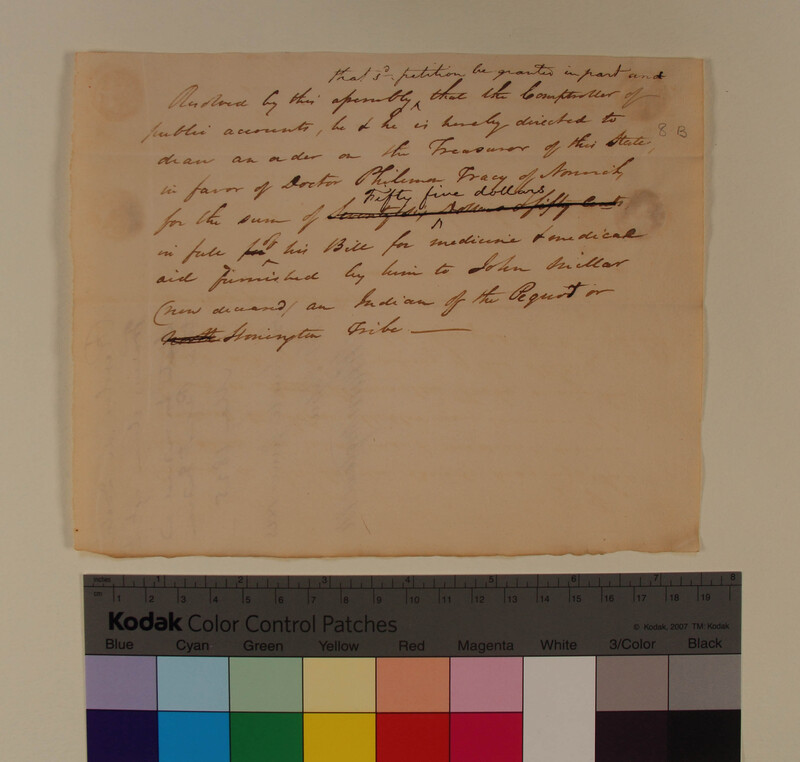 that sd. petition be granted in part and
Resolved by this assembly ^ that the Comptroller of
public accounts, be & he is hereby directed to
draw an order on the Treasuror of this State,
8 B
in favor of Doctor Philemon Tracy of Norwich
Fifty five dollars
for the sum of Seventy six Dollars & fifty Cents
^
in full for his Bill for medicine & medical
aid furnished by him to John Millar
(now deceased) an Indian of the Pequot or
North Stonington Tribe
inches 1 2 3 4 5 6 7 8
cm 1 2 3 4 5 6 7 8 9 10 11 12 13 14 15 16 17 18 19
Kodak Color Control Patches
© Kodak, 2007 TM: Kodak
Blue Cyan Green Yellow Red Magenta White 3/Color Black